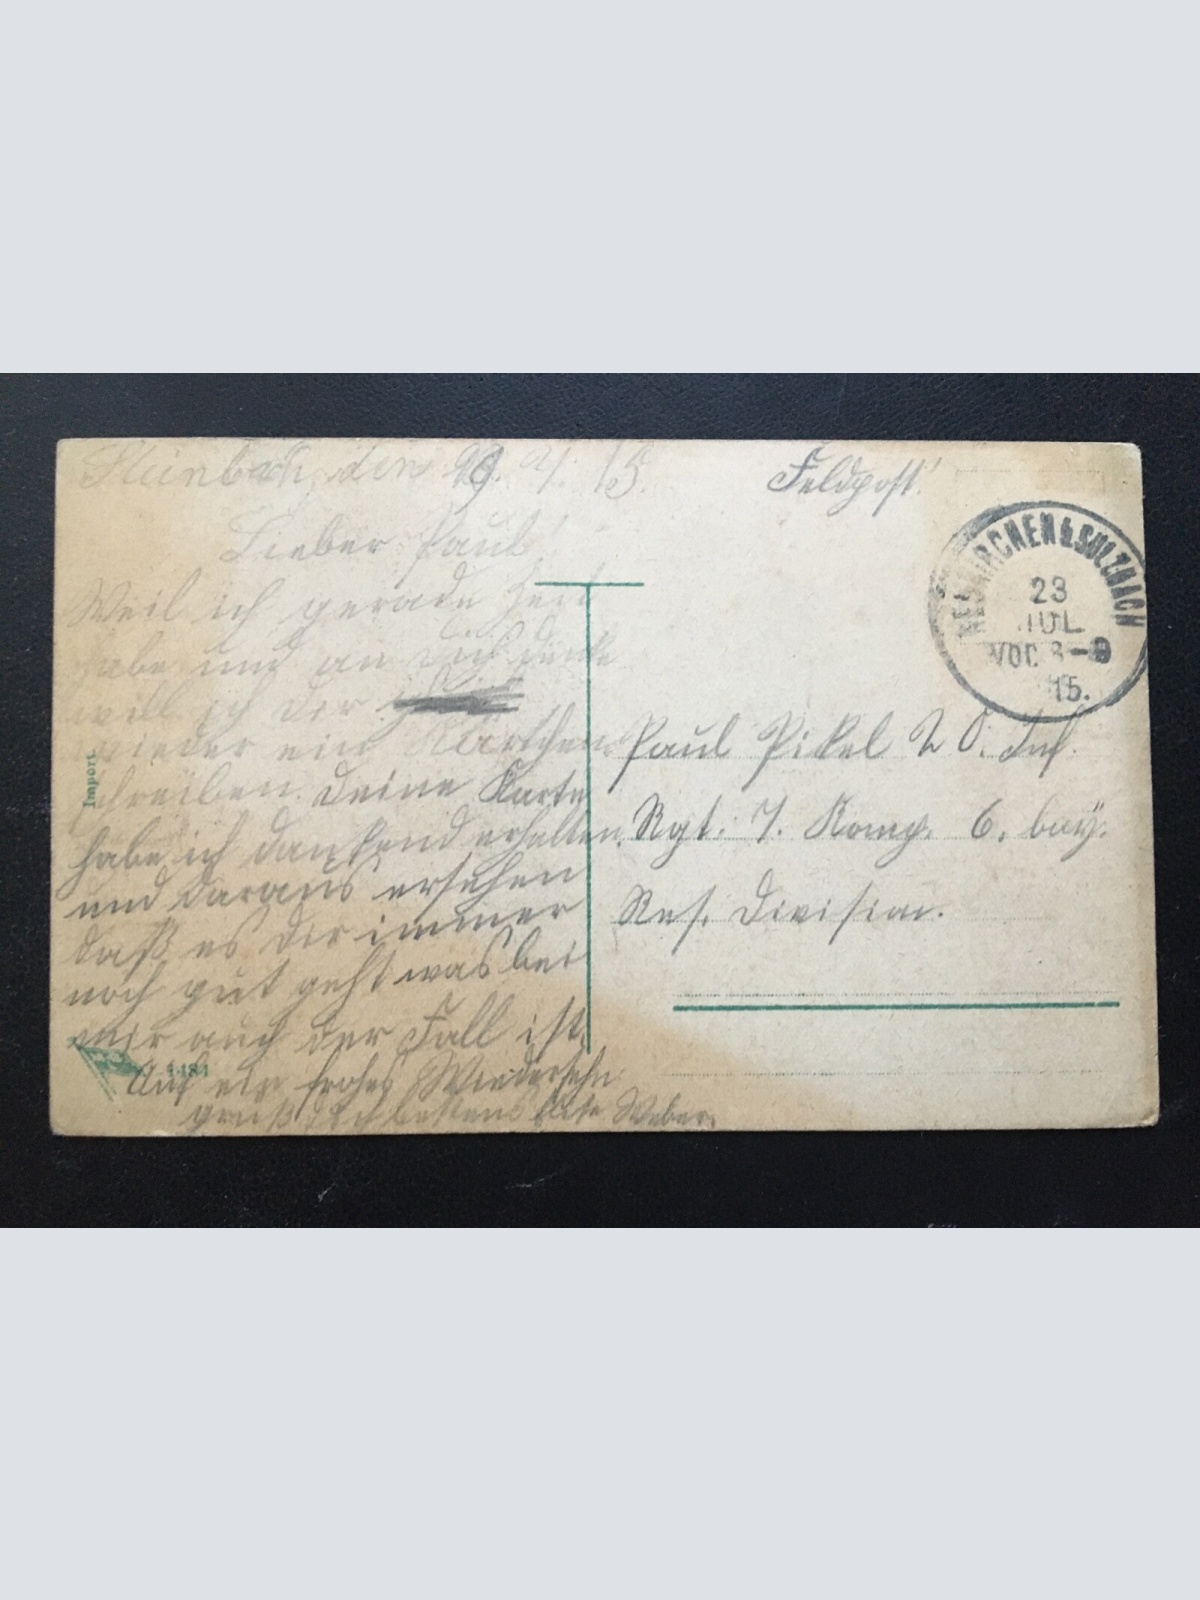 Steinbach, den 7. 15.
Lieber Paul!
Weil ich gerade Zeit
habe und an dich denke
will ich dir
wieder ein Kärtchen
schreiben. Deine Karte
habe ich dankend erhalten.
und daraus ersehen
daß es dir immer
noch gut geht was bei
mir auch der Fall ist.
Auf ein frohes Wiedersehn
grüßt dich bestens Weber.
Import
4484
Feldpost!
NEUKIRCHEN b. SULZBACH
23
JUL
VOR 8-9
15.
Paul Pikel Inf.
Rgt. 7. Komp. 6. bay.
Res. Division.